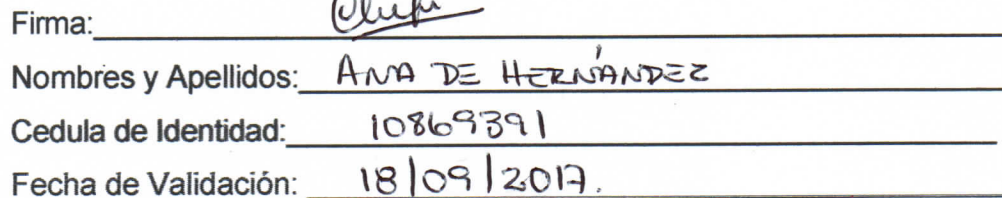 Firma:
Nombres y Apellidos: ANA DE HERNÁNDEZ
Cedula de Identidad: 10869391
Fecha de Validación: 18/09/2017.